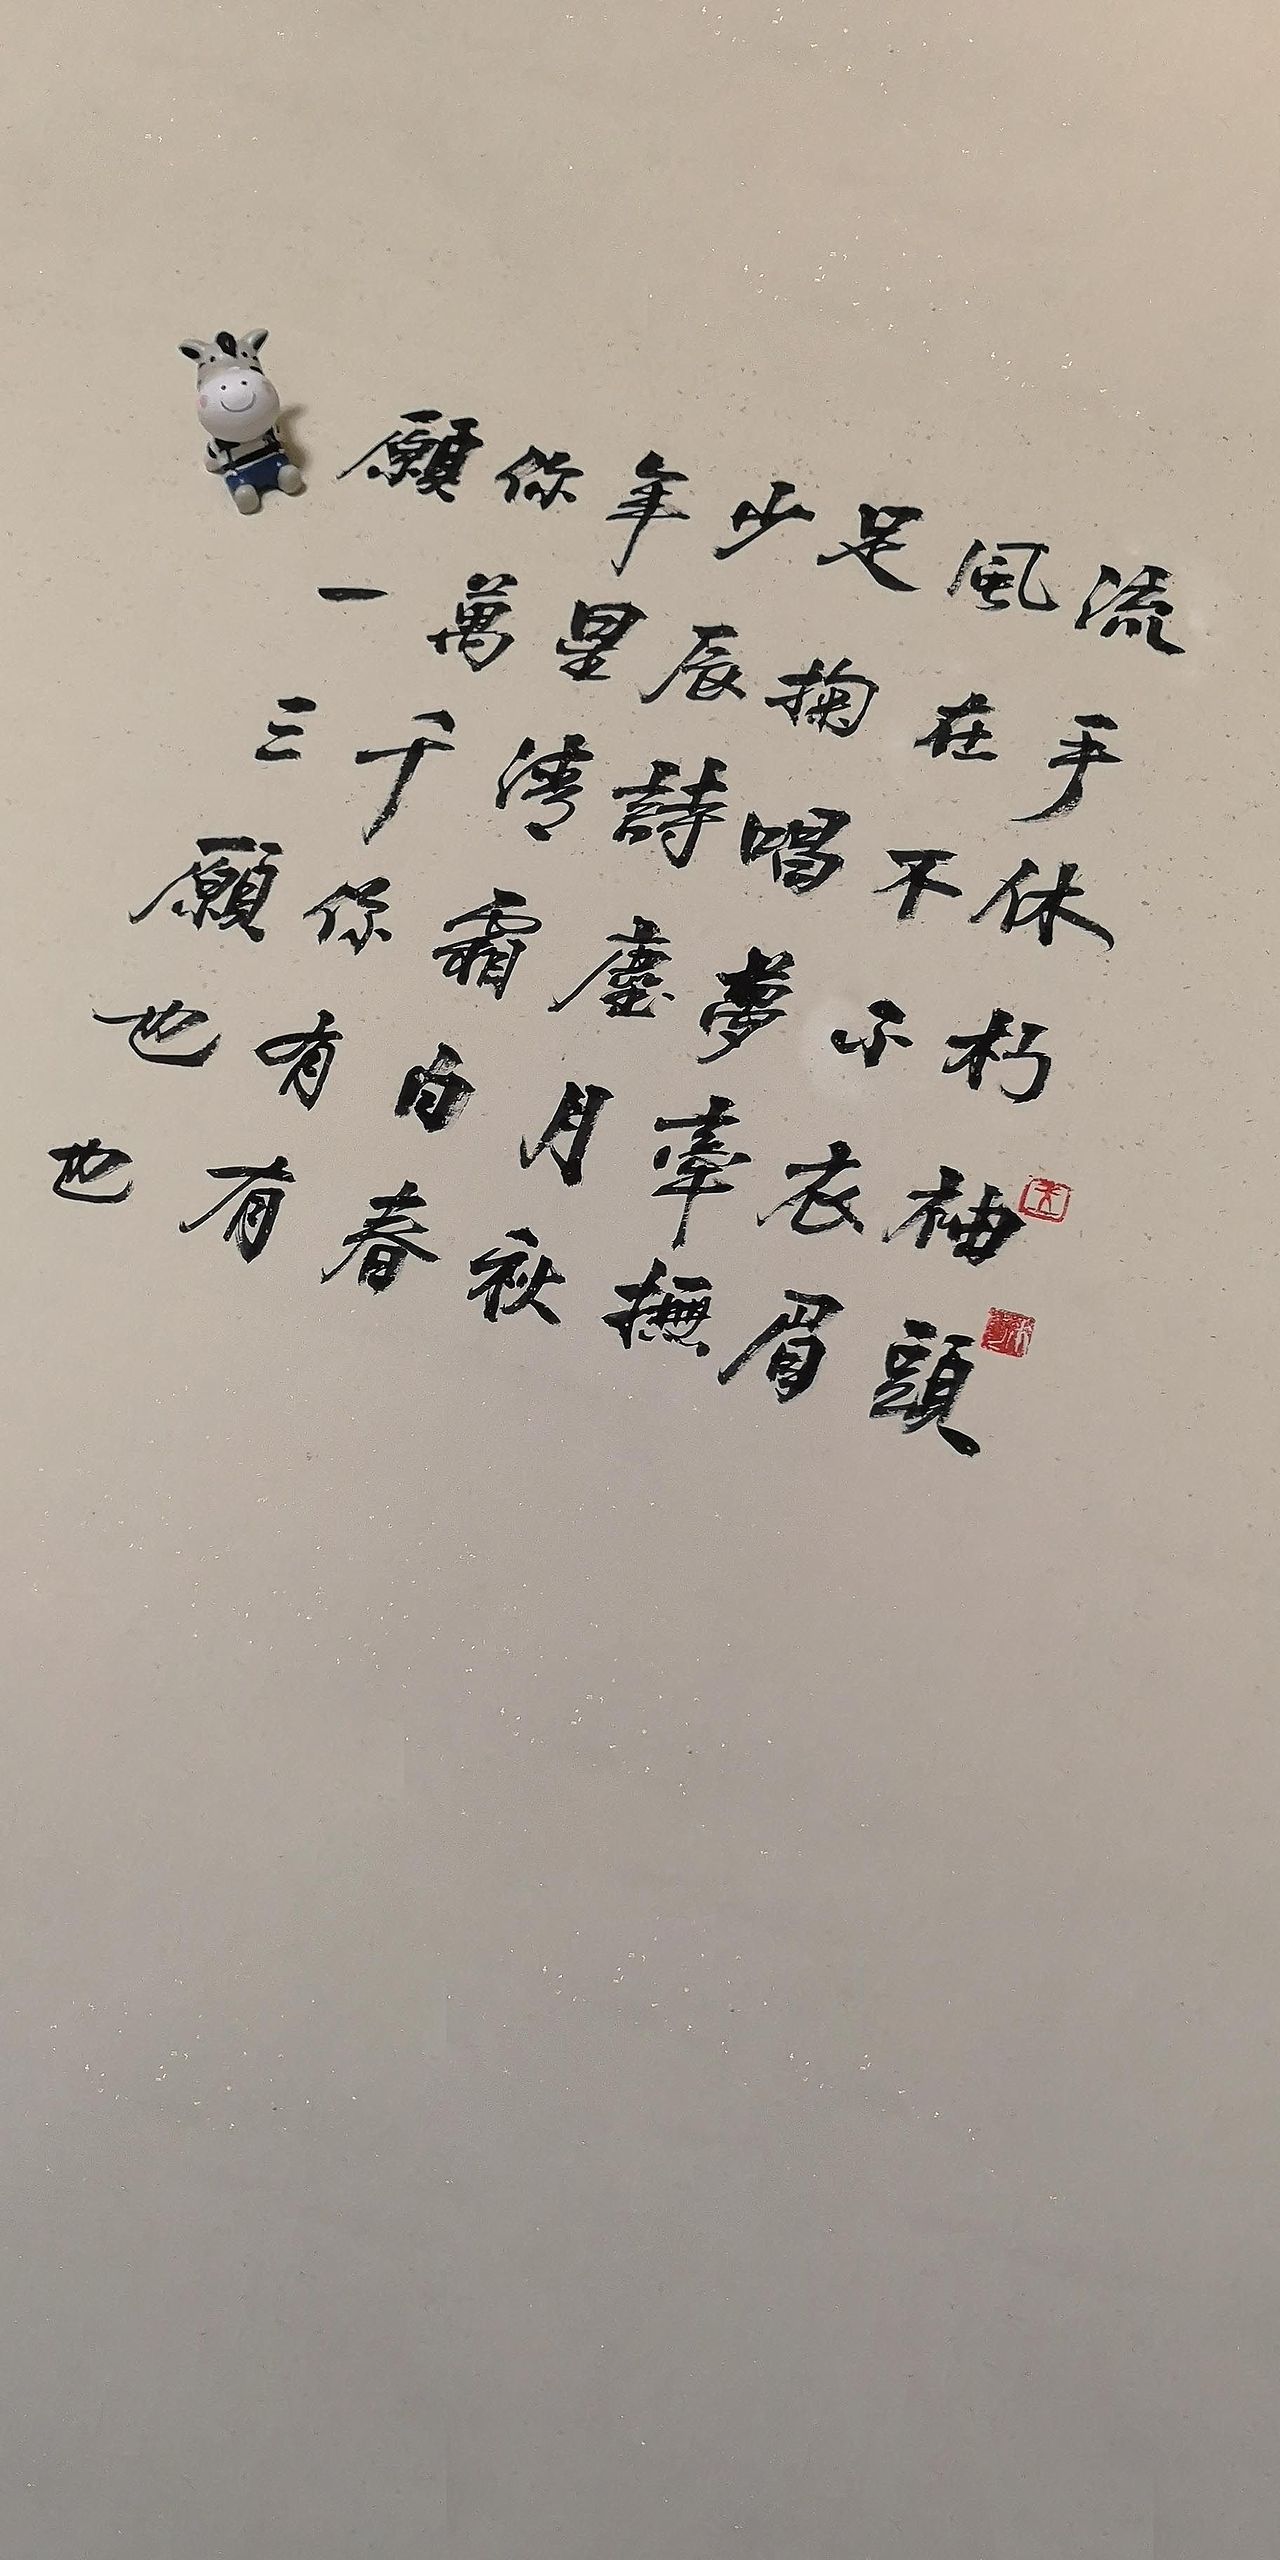 願你年少足風流
一萬星辰掬在手
三千清詩唱不休
願你霜塵夢不朽
也有白月牽衣袖
也有春秋撫眉頭